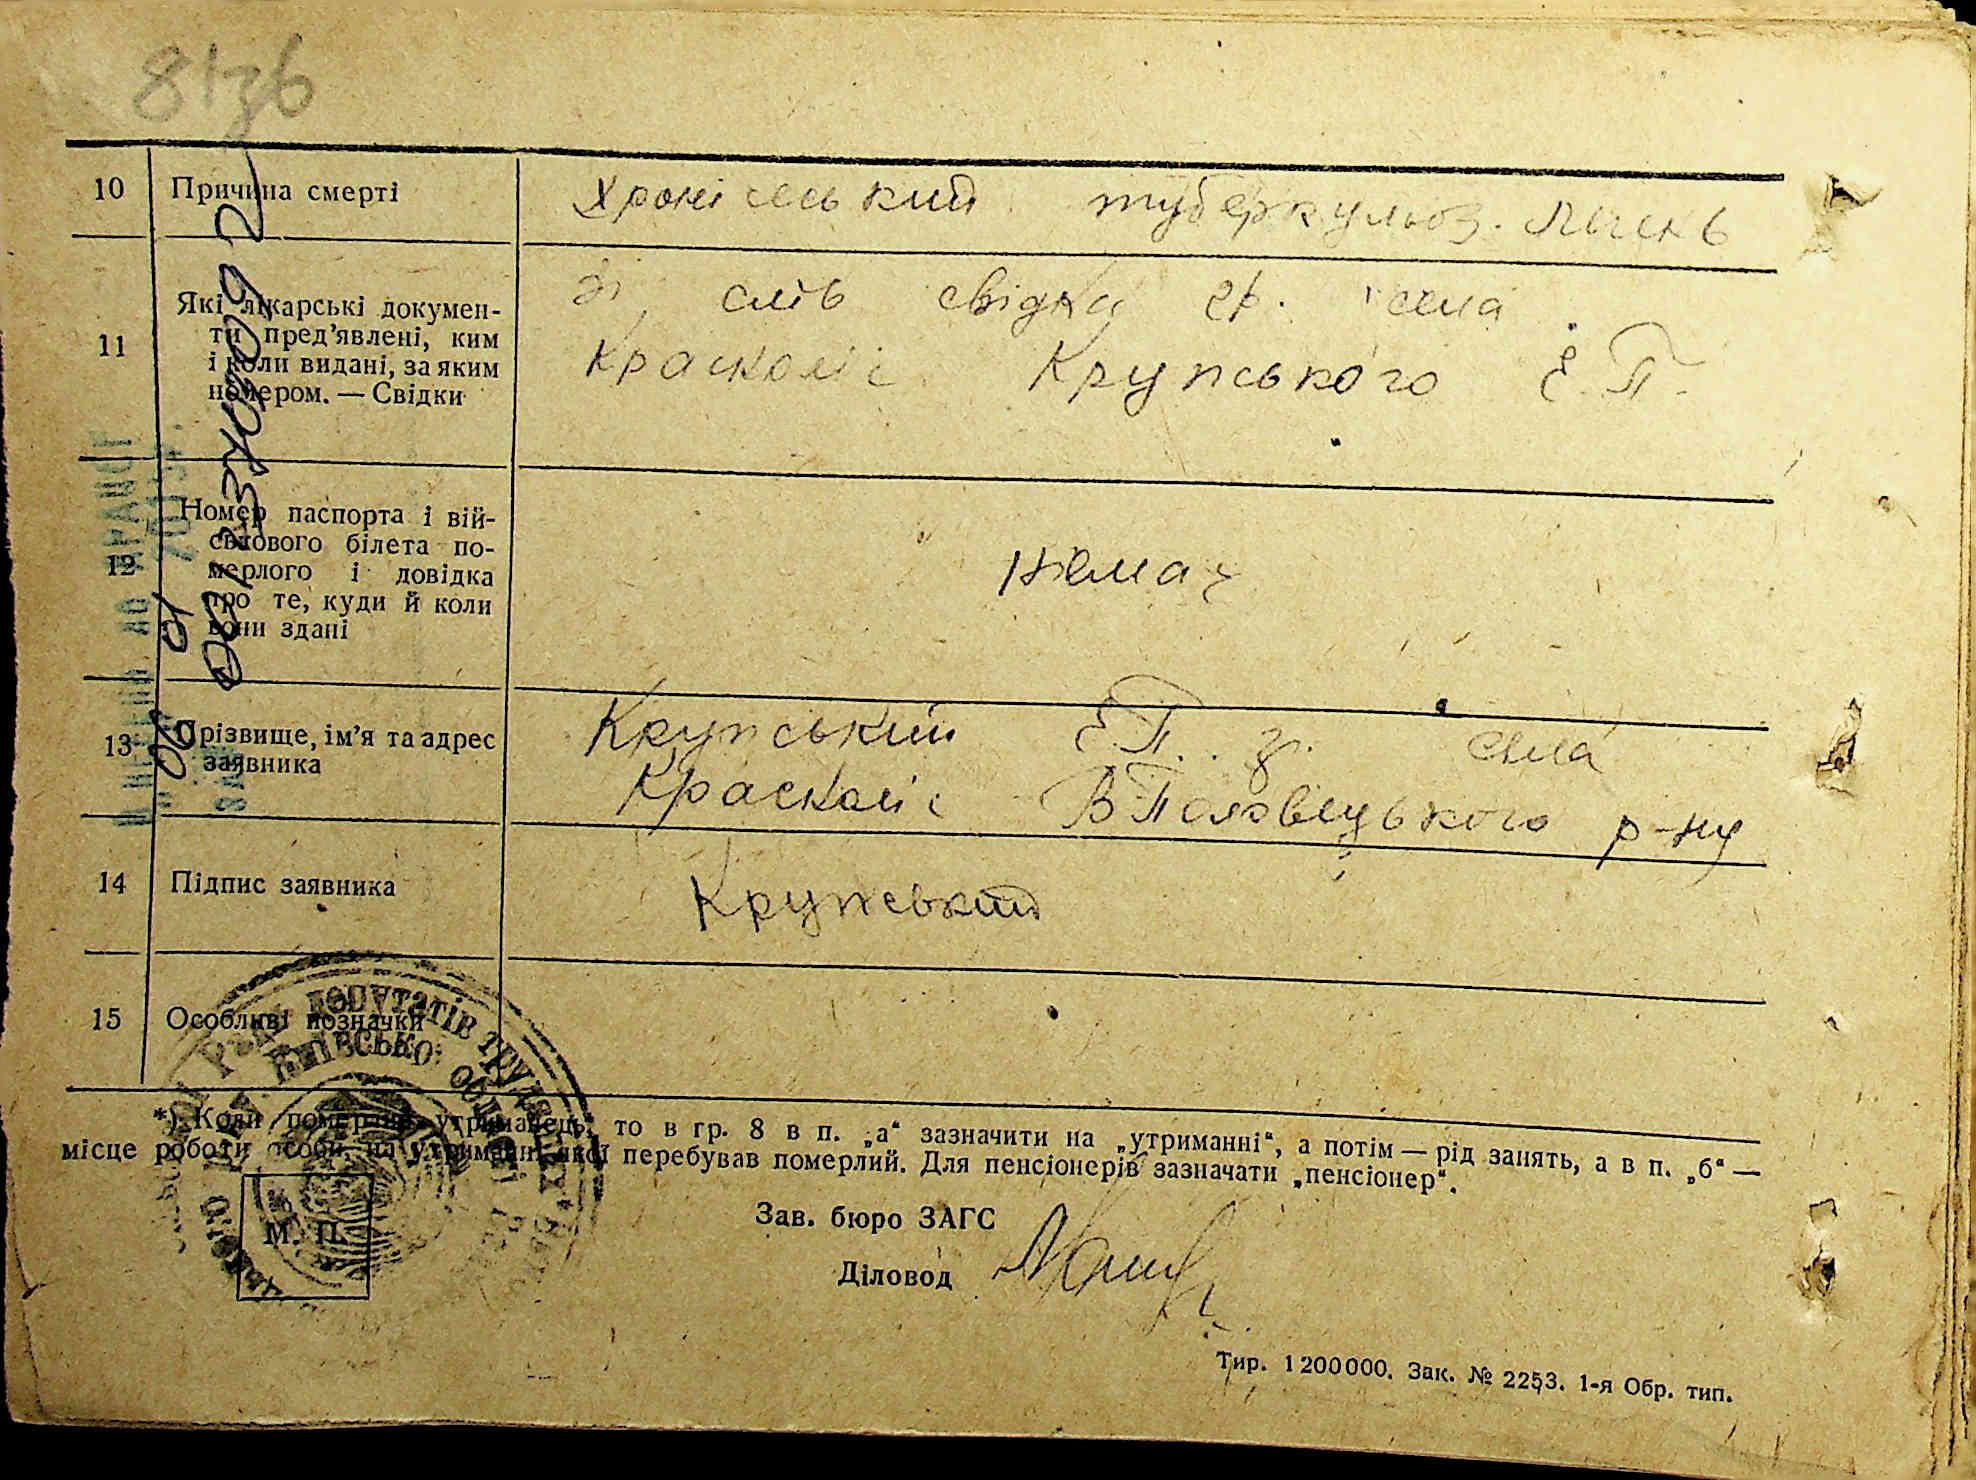 81зв
10 Причина смерті
Хронічеський туберкульоз. Лёгкь
11 Які лікарські докумен-
ти пред'явлені, ким
і коли видані, за яким
номером. — Свідки
зі слів свідка гр. села
Краснолі Крупського Е. П.
12 Номер паспорта і вій-
ськового білета по-
мерлого і довідка
про те, куди й коли
вони здані
Немає
13 Прізвище, ім'я та адрес
заявника
Крупський Е.П. з. села
Краснолі В Половецького р-ну
14 Підпис заявника
Крупський
15 Особливі позначки
Рада депутатів трудящих
Київської області
*) Коли померлий утриманець, то в гр. 8 в п. „а“ зазначити на „утриманні“, а потім — рід занять, а в п. „б“ —
місце роботи особи, на утриманні якої перебував померлий. Для пенсіонерів зазначати „пенсіонер“.
М. П.
Зав. бюро ЗАГС
Діловод
Тир. 1200000. Зак. № 2253. 1-я Обр. тип.